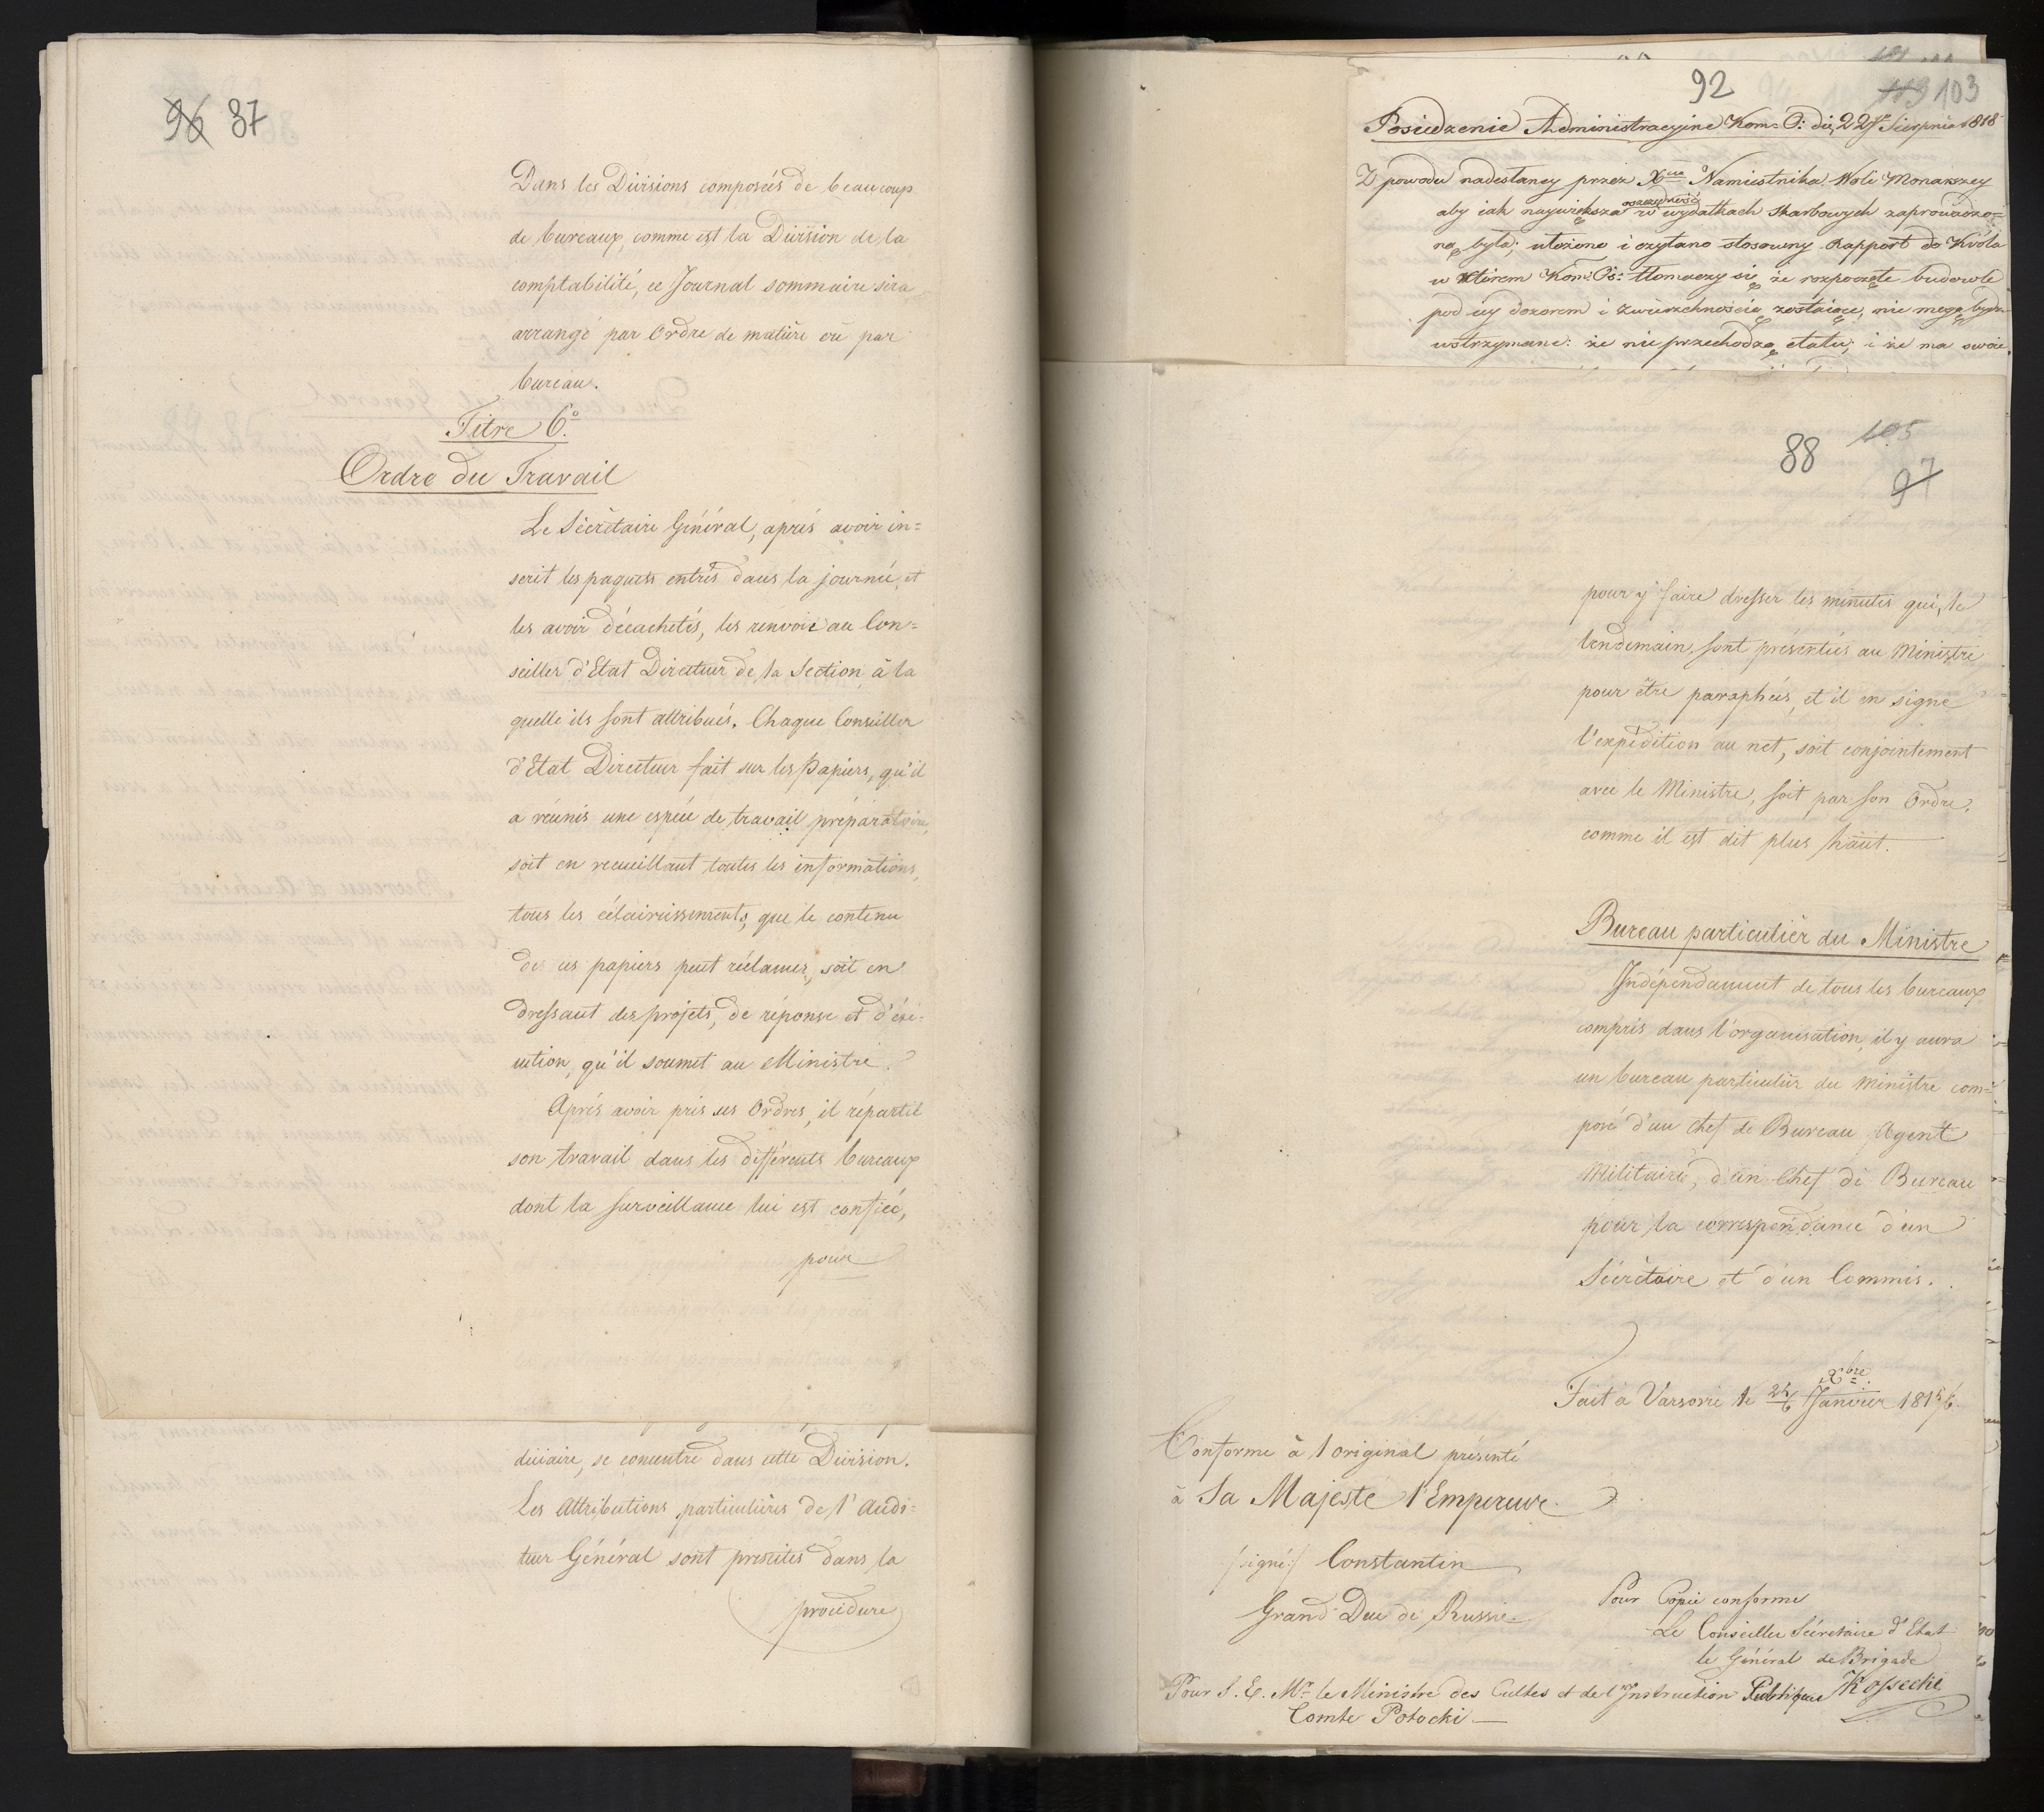 96 87
Dans les Divisions composées de beaucoup
de bureaux, comme est la Division de la
comptabilité, ce Journal sommaire sera
arrangé par Ordre de matière ou par
bureau.
Titre 6.º
Ordre du Travail
Le Sécrétaire Général, après avoir in=
scrit les paquets entrés dans la journée, et
les avoir décachetés, les renvoie au Con=
seiller d'Etat Directeur de la Section à la
quelle ils sont attribués. Chaque Conseiller
d'Etat Directeur fait sur les papiers, qu'il
a réunis une espèce de travail préparatoire,
soit en recueillant toutes les informations,
tous les éclaircissements, que le contenu
de ces papiers peut réclamer, soit en
dressant des projets, de réponse et d'éxé-
cution, qu'il soumet au Ministre.
Après avoir pris ses Ordres, il répartit
son travail dans les différents bureaux
dont la surveillance lui est confiée,
pour
diciaire, se concentre dans cette Division.
Les Attributions particulières de l'Audi=
teur Général sont prescrites dans la
procédure
92 103
Posiedzenie Administracyjne Kom: O: dii 22go Sierpnia 1818
Z powodu nadesłaney przez Xcia Namiestnika Woli Monarszey
aby iak naywiększa oszczędność w wydatkach skarbowych zaprowadzo=
ną była; ułożono i czytano stosowny Rapport do Króla
w którem Kom: Oś: tłomaczy się, że rozpoczęte budowle
pod iey dozorem i zwierzchnością zostaiące, nie mogą bydź
wstrzymane: że nie przechodzą etatu; i że ma swoie
88 105
97
pour y faire dresser les minutes qui, le
lendemain, sont présentées au Ministre
pour être paraphées, et il en signe
l'expédition au net, soit conjointement
avec le Ministre, soit par son Ordre,
comme il est dit plus haut.
Bureau particulier du Ministre
Indépendamment de tous les bureaux
compris dans l'organisation, il y aura
un bureau particulier du Ministre com=
posé d'un chef de Bureau Agent
Militaire, d'un Chef de Bureau
pour la correspondance d'un
Sécrétaire et d'un Commis.
Xbre
Fait à Varsovie le 25/6 Janvier 1815/6.
Conforme à l'original présenté
à Sa Majesté l'Empereur.
/signé/ Constantin
Grand Duc de Russie.
Pour Copie conforme
Le Conseiller Sécretaire d'Etat
le Général de Brigade
Kossecki
Pour S. E. Mr. le Ministre des Cultes et de l'Instruction Publique
Comte Potocki